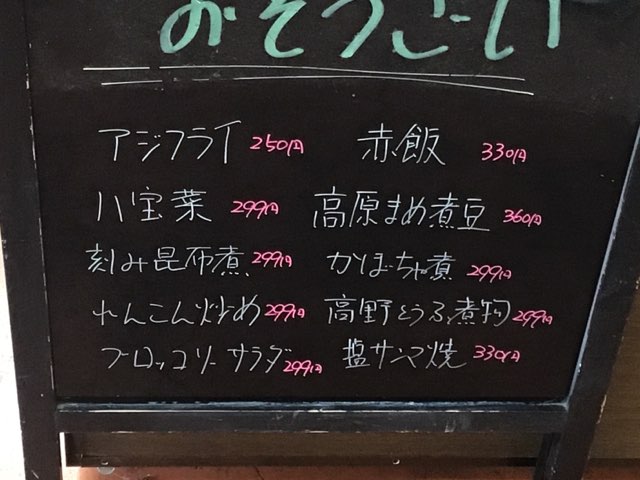 おそうざい
アジフライ 250円 赤飯 330円
八宝菜 299円 高原まめ煮豆 360円
刻み昆布煮 299円 かぼちゃ煮 299円
れんこん炒め 299円 高野とうふ煮物 299円
ブロッコリーサラダ 299円 塩サンマ焼 330円